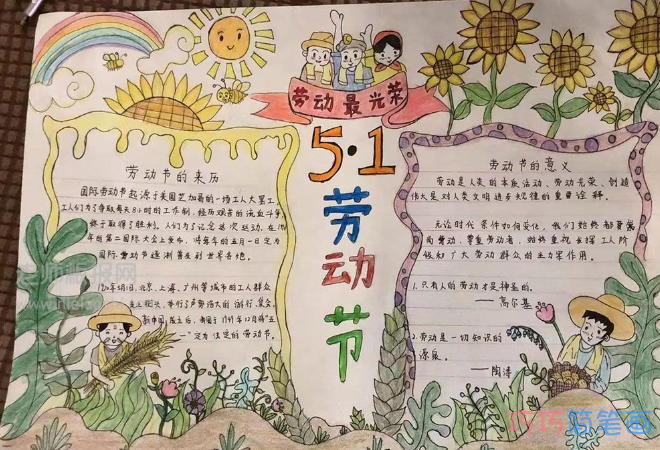 劳动最光荣
5·1
劳动节
劳动节的来历
国际劳动节起源于美国芝加哥的一场工人大罢工，
工人们为了争取每天8小时的工作制，经历艰苦的流血斗争，
终于取得了胜利。人们为了纪念这次运动，在18
年的第二国际大会上宣布，将每年的五月一日定为
国际劳动节
1920年5月1日，北京、上海、广州等城市的工人群众
走上街头，举行了声势浩大的游行、集会。
新中国成立后，
定为法定的劳动节。
劳动节的意义
劳动是人类的本质活动，劳动光荣、创造
伟大是对人类文明进步规律的重要诠释。
无论时代条件如何变化，我们始终都要崇
尚劳动、尊重劳动者，始终重视发挥工人阶
级和广大劳动群众的主力军作用。
1.只有人的劳动才是神圣的。
——高尔基
2.劳动是一切知识的
源泉。
——陶铸
巧巧简笔画